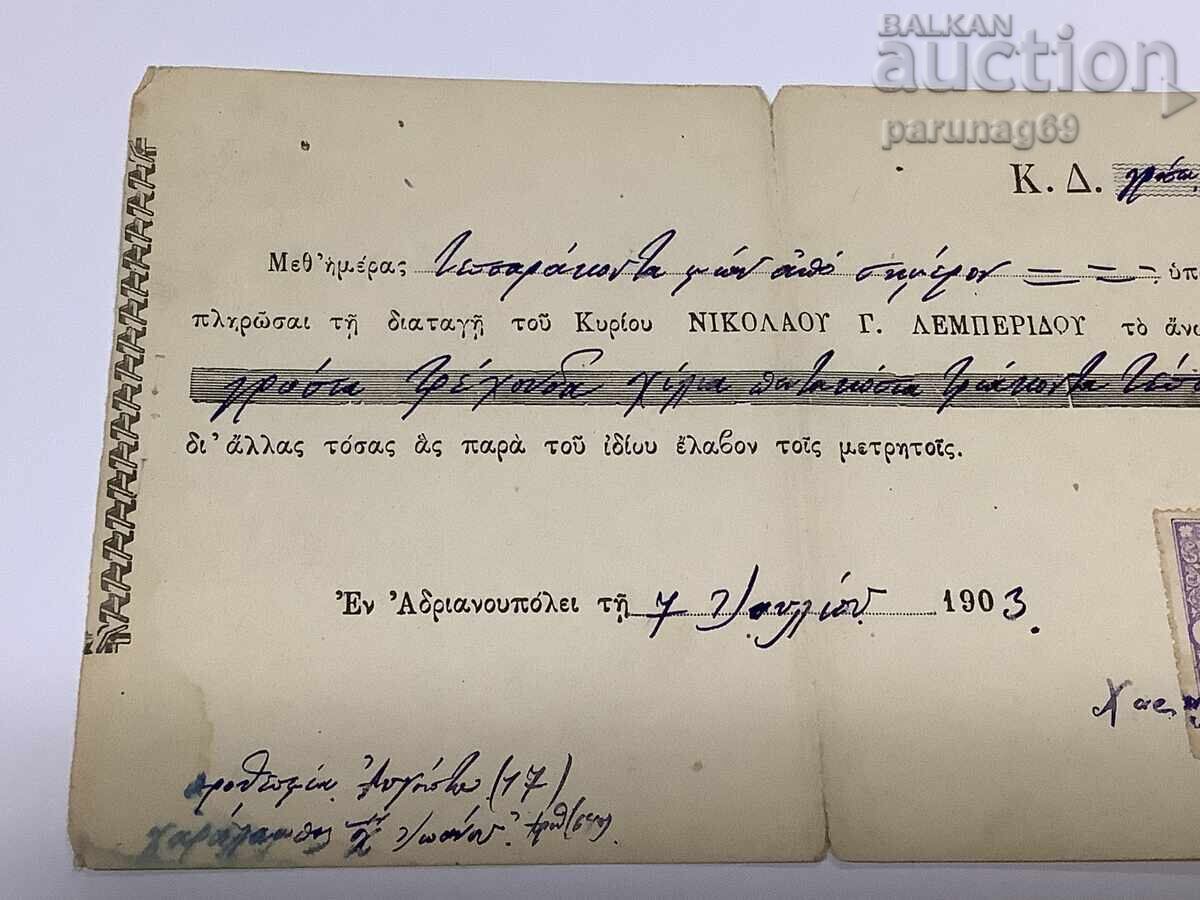 BALKAN
auction
parunag69
Κ. Δ. γρόσια
Μεθ' ἡμέρας τεσσαράκοντα μίαν ἀπὸ σήμερον ὑπ
πληρῶσαι τῇ διαταγῇ τοῦ Κυρίου ΝΙΚΟΛΑΟΥ Γ. ΛΕΜΠΕΡΙΔΟΥ τὸ ἄνω
γρόσια τρέχοντα χίλια τριάκοντα
δι' ἄλλας τόσας ἃς παρὰ τοῦ ἰδίου ἔλαβον τοῖς μετρητοῖς.
Ἐν Ἀδριανουπόλει τῇ 7 Ἰουλίου 1903.
Χας
προθεσμία Αὐγούστου (17)
Χαράλαμπος Χ''